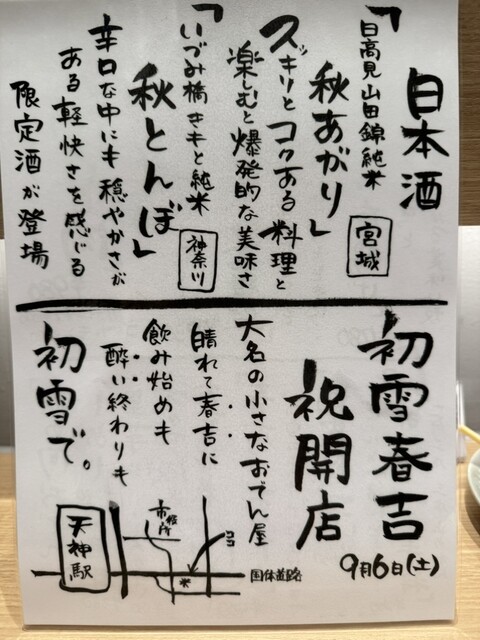 日本酒
「日高見 山田錦純米
秋あがり」
宮城
スキリとコクある料理と
楽しむと爆発的な美味さ
「いづみ橋きもと純米
秋とんぼ」
神奈川
辛口な中にも穏やかさが
ある軽快さを感じる
限定酒が登場
初雪春吉
祝開店
9月6日(土)
大名の小さなおでん屋
晴れて春吉に
飲み始めも
酔い終わりも
初雪で。
天神駅
市役所
ココ
国体道路